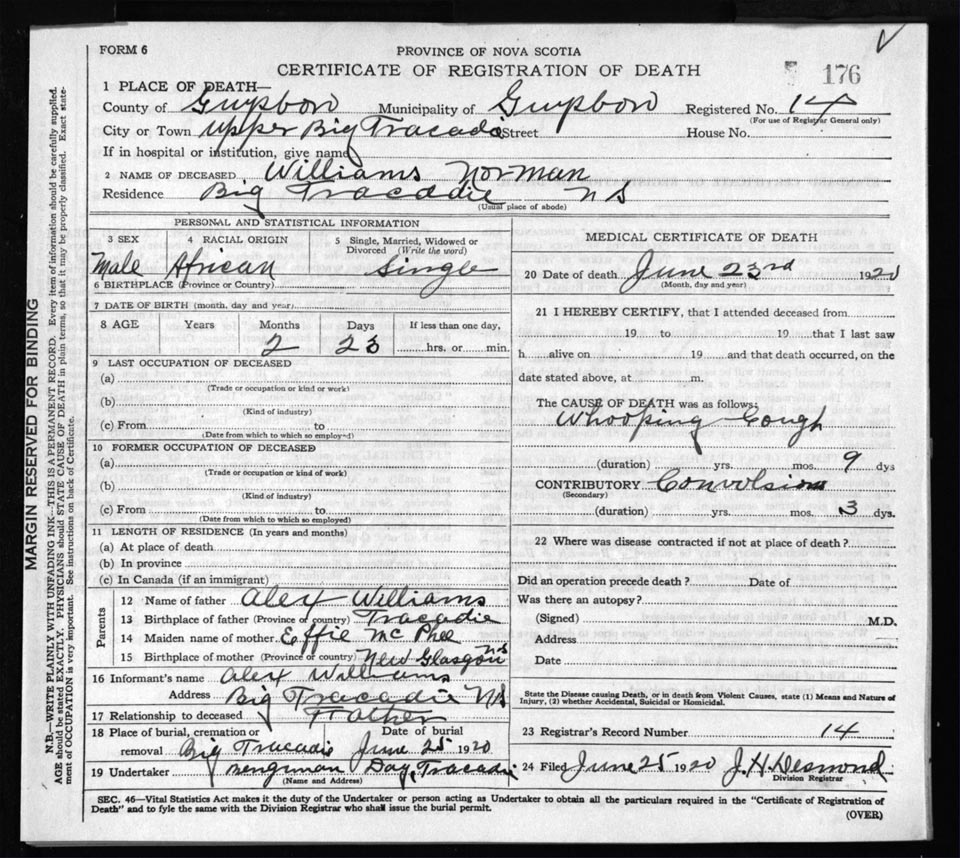 FORM 6
PROVINCE OF NOVA SCOTIA
CERTIFICATE OF REGISTRATION OF DEATH
176
1 PLACE OF DEATH—
County of Guysboro Municipality of Guysboro Registered No. 14
(For use of Registrar General only)
City or Town Upper Big Tracadie Street House No.
If in hospital or institution, give name
2 NAME OF DECEASED Williams Norman
Residence Big Tracadie N S
(Usual place of abode)
PERSONAL AND STATISTICAL INFORMATION
3 SEX 4 RACIAL ORIGIN 5 Single, Married, Widowed or Divorced (Write the word)
Male African Single
6 BIRTHPLACE (Province or Country)
7 DATE OF BIRTH (month, day and year)
8 AGE Years Months Days If less than one day,
2 23 hrs. or min.
9 LAST OCCUPATION OF DECEASED
(a)
(Trade or occupation or kind or work)
(b)
(Kind of industry)
(c) From to
(Date from which to which so employed)
10 FORMER OCCUPATION OF DECEASED
(a)
(Trade or occupation or kind of work)
(b)
(Kind of industry)
(c) From to
(Date from which to which so employed)
11 LENGTH OF RESIDENCE (In years and months)
(a) At place of death
(b) In province
(c) In Canada (if an immigrant)
Parents
12 Name of father Alex Williams
13 Birthplace of father (Province or country) Tracadie
14 Maiden name of mother Effie Mc Phee
15 Birthplace of mother (Province or country) New Glasgow NS
16 Informant's name Alex Williams
Address Big Tracadie NS
17 Relationship to deceased Father
18 Place of burial, cremation or removal Date of burial
Big Tracadie June 25 1920
19 Undertaker Bengiman Day, Tracadie
(Name and Address)
MEDICAL CERTIFICATE OF DEATH
20 Date of death June 23rd 1920
(Month, day and year)
21 I HEREBY CERTIFY, that I attended deceased from
19 to 19 that I last saw
h alive on 19 and that death occurred, on the
date stated above, at m.
The CAUSE OF DEATH was as follows:
Whooping Cough
(duration) yrs. mos. 9 dys
CONTRIBUTORY Convolsions
(Secondary)
(duration) yrs. mos. 3 dys.
22 Where was disease contracted if not at place of death?
Did an operation precede death? Date of
Was there an autopsy?
(Signed) M.D.
Address
Date
State the Disease causing Death, or in death from Violent Causes, state (1) Means and Nature of
Injury, (2) whether Accidental, Suicidal or Homicidal.
23 Registrar's Record Number 14
24 Filed June 25 1920 J. H. Desmond
Division Registrar
SEC. 46—Vital Statistics Act makes it the duty of the Undertaker or person acting as Undertaker to obtain all the particulars required in the "Certificate of Registration of
Death" and to fyle the same with the Division Registrar who shall issue the burial permit.
(OVER)
MARGIN RESERVED FOR BINDING
N.B.—WRITE PLAINLY WITH UNFADING INK—THIS IS A PERMANENT RECORD. Every item of information should be carefully supplied.
AGE should be stated EXACTLY. PHYSICIANS should STATE CAUSE OF DEATH in plain terms, so that it may be properly classified. Exact state-
ment of OCCUPATION is very important. See instructions on back of Certificate.